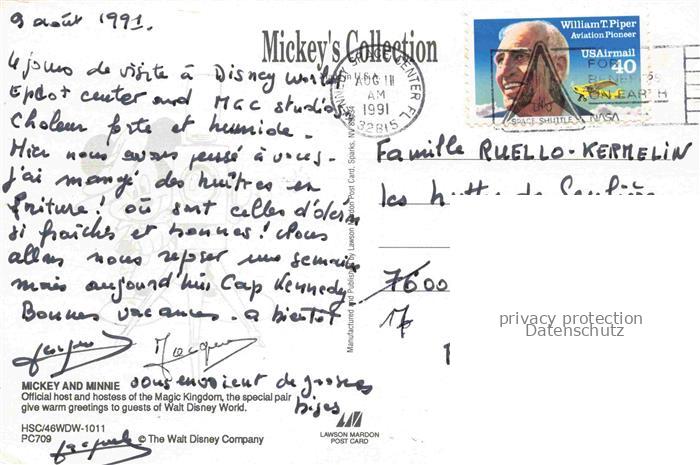 9 août 1991.
Mickey's Collection
4 jours de visite à Disney World
Epcot center and MGC studios
Chaleur forte et humide.
Hier nous avons pensé à vous.
j'ai mangé des huîtres en
friture! où sont celles d'
si fraîches et bonnes! Nous
allons nous reposer une semaine
mais aujourd'hui Cap Kennedy
Bonnes vacances. a bientôt
vous envoient de grosses
bises
MICKEY AND MINNIE
Official host and hostess of the Magic Kingdom, the special pair
give warm greetings to guests of Walt Disney World.
HSC/46WDW-1011
PC709
© The Walt Disney Company
Manufactured and Published by Lawson Mardon Post Card, Sparks, NV
LAWSON MARDON
POST CARD
William T. Piper
Aviation Pioneer
USAirmail
40
CENTER FL
AUG 11
AM
1991
32815
FOR
ON EARTH
SPACE SHUTTLE
NASA
Famille RUELLO-KERMELIN
les
7600
17
privacy protection
Datenschutz